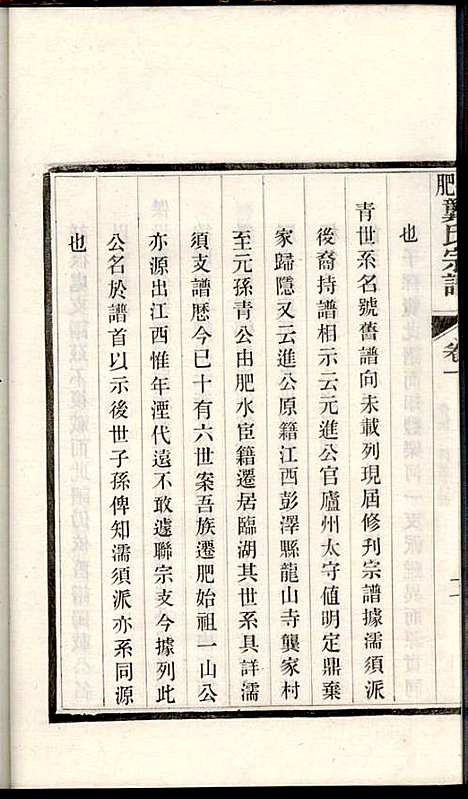 肥龔氏宗譜 卷一
也
青世系名號舊譜向未載列現屆修刋宗譜據濡須派
後裔持譜相示云元進公官廬州太守值明定鼎棄
家歸隱又云進公原籍江西彭澤縣龍山寺龔家村
至元孫青公由肥水宦籍遷居臨湖其世系具詳濡
須支譜歷今已十有六世案吾族遷肥始祖一山公
亦源出江西惟年湮代遠不敢遽聯宗支今據列此
公名於譜首以示後世子孫俾知濡須派亦系同源
也